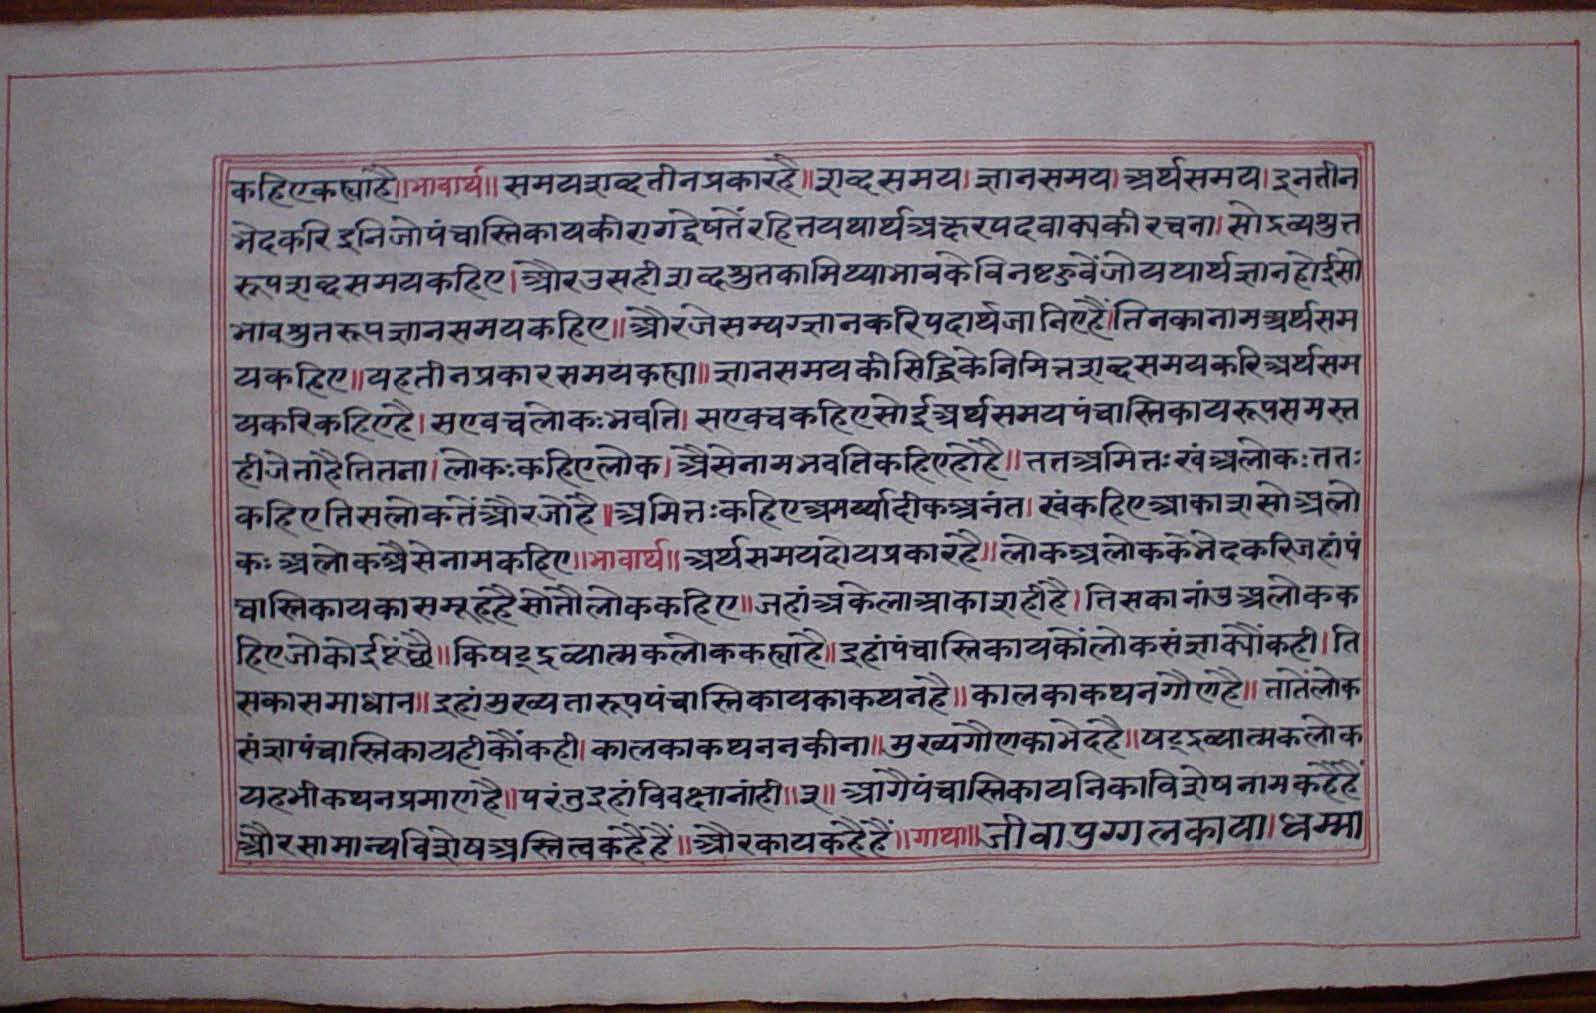 कहिएकह्याहै॥भावार्थ॥समयशब्दतीनप्रकारहै॥शब्दसमय।ज्ञानसमय।अर्थसमय।इनतीन
भेदकरिइनिजोपंचास्तिकायकीरागद्वेषतेंरहितयथार्थअक्षरपदवाक्यकीरचना।सोद्रव्यश्रुत
रूपशब्दसमयकहिए।औरउसहीशब्दश्रुतकामिथ्याभावकेविनष्टहुवेंजोयथार्थज्ञानहोईसो
भावश्रुतरूपज्ञानसमयकहिए॥औरजेसम्यग्ज्ञानकरिपदार्थजानिएहैं।तिनकानामअर्थसम
यकहिए॥यहतीनप्रकारसमयकह्या॥ज्ञानसमयकीसिद्धिकेनिमित्तशब्दसमयकरिअर्थसम
यकरिकहिएहै।सएवचलोकःभवति।सएवचकहिएसोईअर्थसमयपंचास्तिकायरूपसमस्त
हीजेताहैतितना।लोकःकहिएलोक।अैसेनामभवतिकहिएहोहै॥ततअमितःखंअलोकःततः
कहिएतिसलोकतेंऔरजोहै॥अमितःकहिएअमर्य्यादीकअनंत।खंकहिएआकाशसोअलो
कःअलोकअैसेनामकहिए॥भावार्थ॥अर्थसमयदोयप्रकारहै॥लोकअलोककेभेदकरिजहांपं
चास्तिकायकासमूहहैसोतौलोककहिए॥जहांअकेलाआकाशहीहै।तिसकानांउअलोकक
हिएजोकोई॥किषट्द्रव्यात्मकलोककह्याहै॥इहांपंचास्तिकायकोंलोकसंज्ञाक्योंकही।ति
सकासमाधान॥इहांमुख्यतारूपपंचास्तिकायकाकथनहै॥कालकाकथनगौणहै॥तातेंलोक
संज्ञापंचास्तिकायहीकौंकही।कालकाकथननकीना॥मुख्यगौणकाभेदहै॥षट्द्रव्यात्मकलोक
यहभीकथनप्रमाणहै॥परंतुइहांविवक्षानांही॥३॥आगैपंचास्तिकायनिकाविशेषनामकहैंहैं
औरसामान्यविशेषअस्तित्वकहैंहैं॥औरकायकहैहैं॥गाथा॥जीवापुग्गलकाया।धम्मा